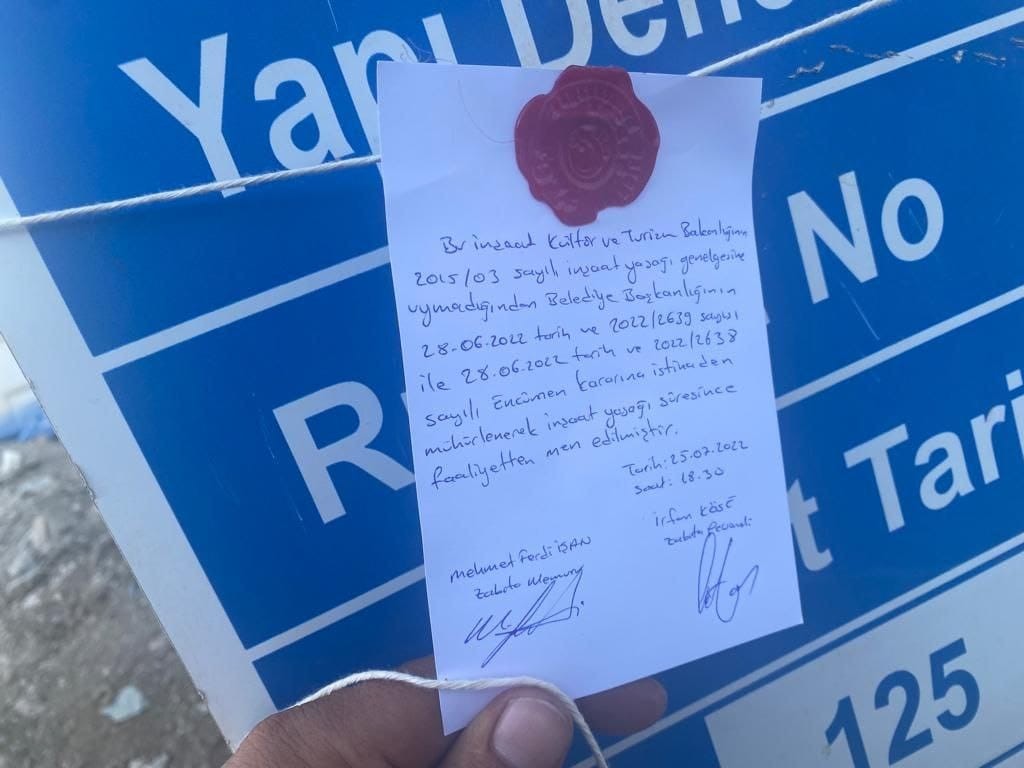 Yapı Dene
No
R
t Tari
125
Bu inşaat Kültür ve Turizm Bakanlığının
2015/03 sayılı inşaat yasağı genelgesine
uymadığından Belediye Başkanlığının
28-06.2022 tarih ve 2022/2639 sayılı
ile 28.06.2022 tarih ve 2022/2638
sayılı Encümen kararına istinaden
mühürlenerek inşaat yasağı süresince
faaliyetten men edilmiştir.
Tarih: 25.07.2022
Saat: 18.30
Mehmet Ferdi İŞAN
Zabıta Memuru
İrfan KÖSE
Zabıta